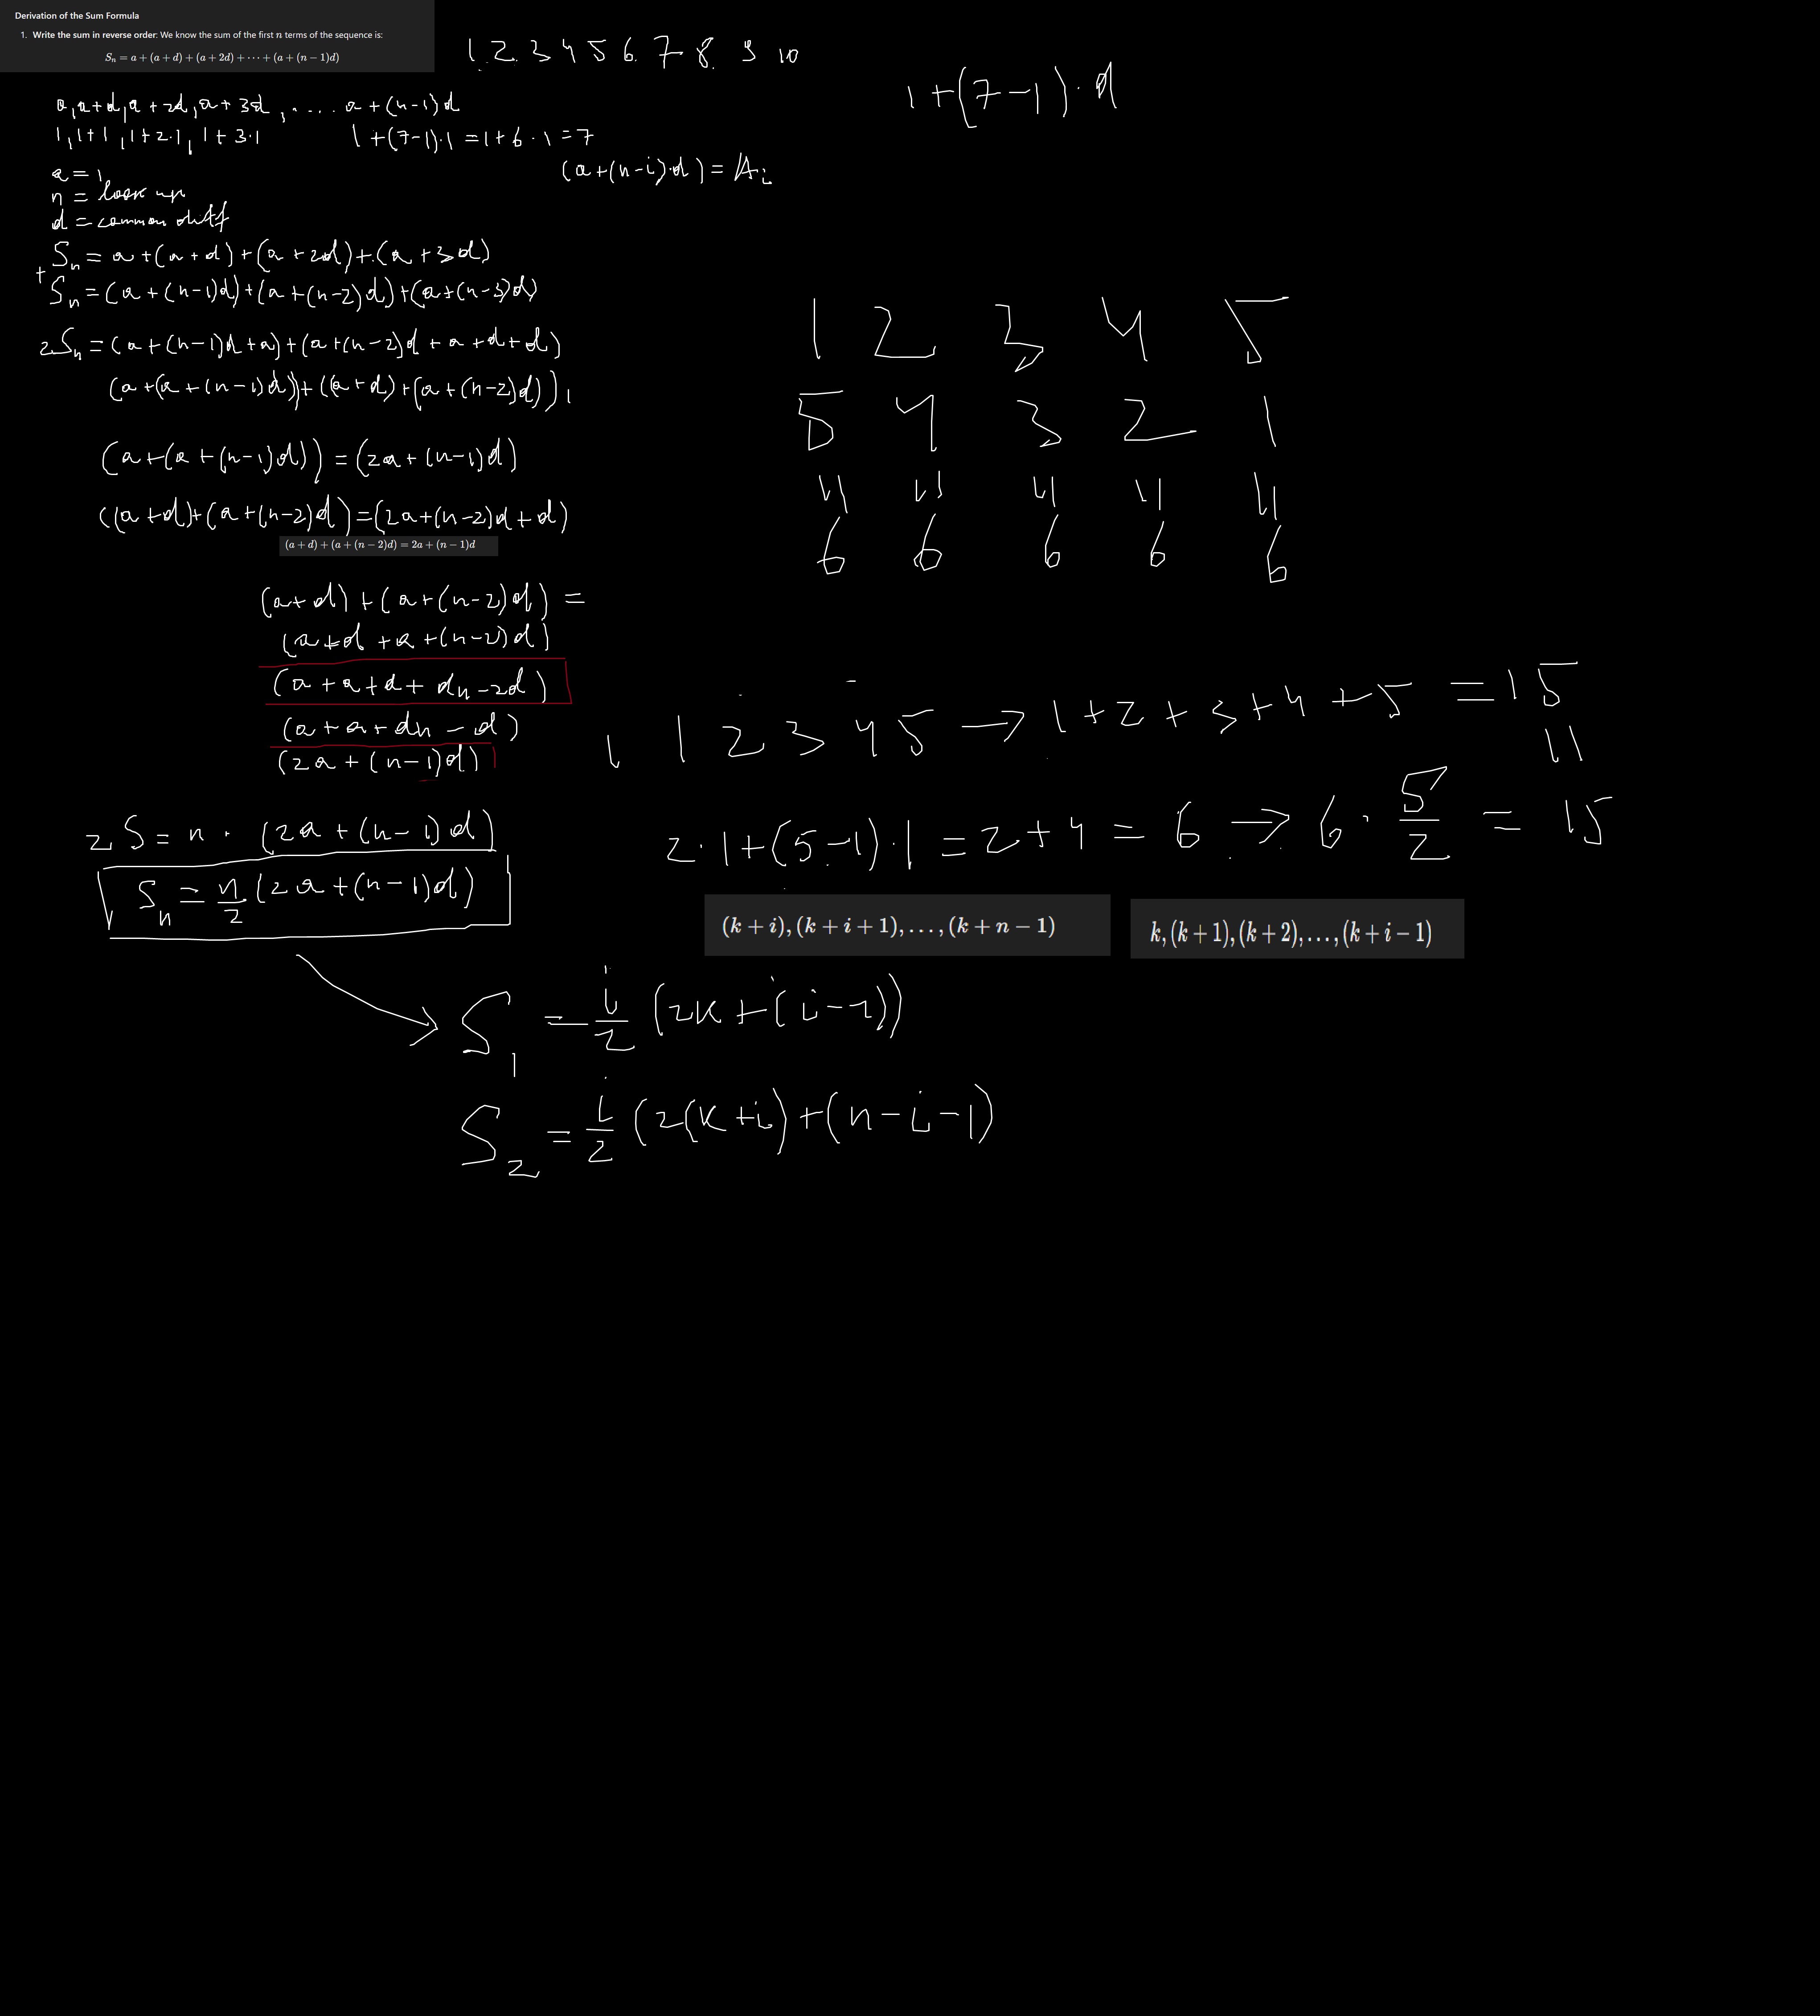 Derivation of the Sum Formula
1. Write the sum in reverse order: We know the sum of the first n terms of the sequence is:
Sₙ = a + (a + d) + (a + 2d) + ··· + (a + (n − 1)d)
1 2 3 4 5 6 7 8 9 10
1+(7-1)·d
a, a+d, a+2d, a+3d, .... a+(n-1)d
1, 1+1, 1+2·1, 1+3·1
1+(7-1)·1 = 1+6·1 = 7
(a+(n-i)·d) = Aᵢ
a = 1
n = look up
d = common diff
Sₙ = a+(a+d)+(a+2d)+(a+3d)
+
Sₙ = (a+(n-1)d)+(a+(n-2)d)+(a+(n-3)d)
2Sₙ = (a+(n-1)d+a)+(a+(n-2)d+a+d+d)
(a+(a+(n-1)d))+((a+d)+(a+(n-2)d)),
(a+(a+(n-1)d)) = (2a+(n-1)d)
((a+d)+(a+(n-2)d) = (2a+(n-2)d+d)
(a + d) + (a + (n − 2)d) = 2a + (n − 1)d
1 2 3 4 5
5 4 3 2 1
11 11 11 11 11
6 6 6 6 6
(a+d)+(a+(n-2)d) =
(a+d+a+(n-2)d)
(a+a+d+dn-2d)
(a+a+dn-d)
(2a+(n-1)d)
1 2 3 4 5 → 1+2+3+4+5 = 15
11
2·1+(5-1)·1 = 2+4 = 6 → 6·5/2 = 15
2S = n·(2a+(n-1)d)
Sₙ = n/2 (2a+(n-1)d)
(k + i), (k + i + 1), . . . , (k + n − 1)
k, (k + 1), (k + 2), . . . , (k + i − 1)
S₁ = i/2 (2k+(i-1))
S₂ = i/2 (2(k+i)+(n-i-1)